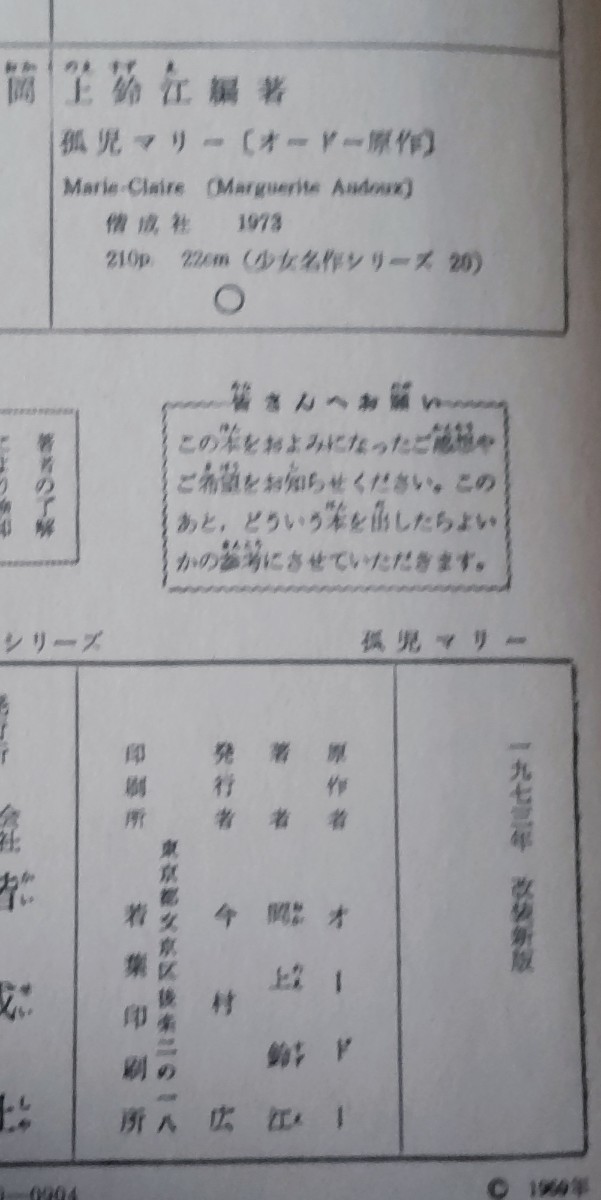 岡上鈴江編著
孤児マリー〔オードー原作〕
Marie-Claire 〔Marguerite Audoux〕
偕成社 1973
210p. 22cm (少女名作シリーズ 20)
皆さんへお願い
この本をおよみになったご感想や
ご希望をお知らせください。この
あと、どういう本を出したらよい
かの参考にさせていただきます。
著者の了解
シリーズ
孤児マリー
一九七三年 改装新版
原作者 オードー
著者 岡上鈴江
発行者 今村広
東京都文京区後楽二の一八
印刷所 若葉印刷所
0904
© 1960年